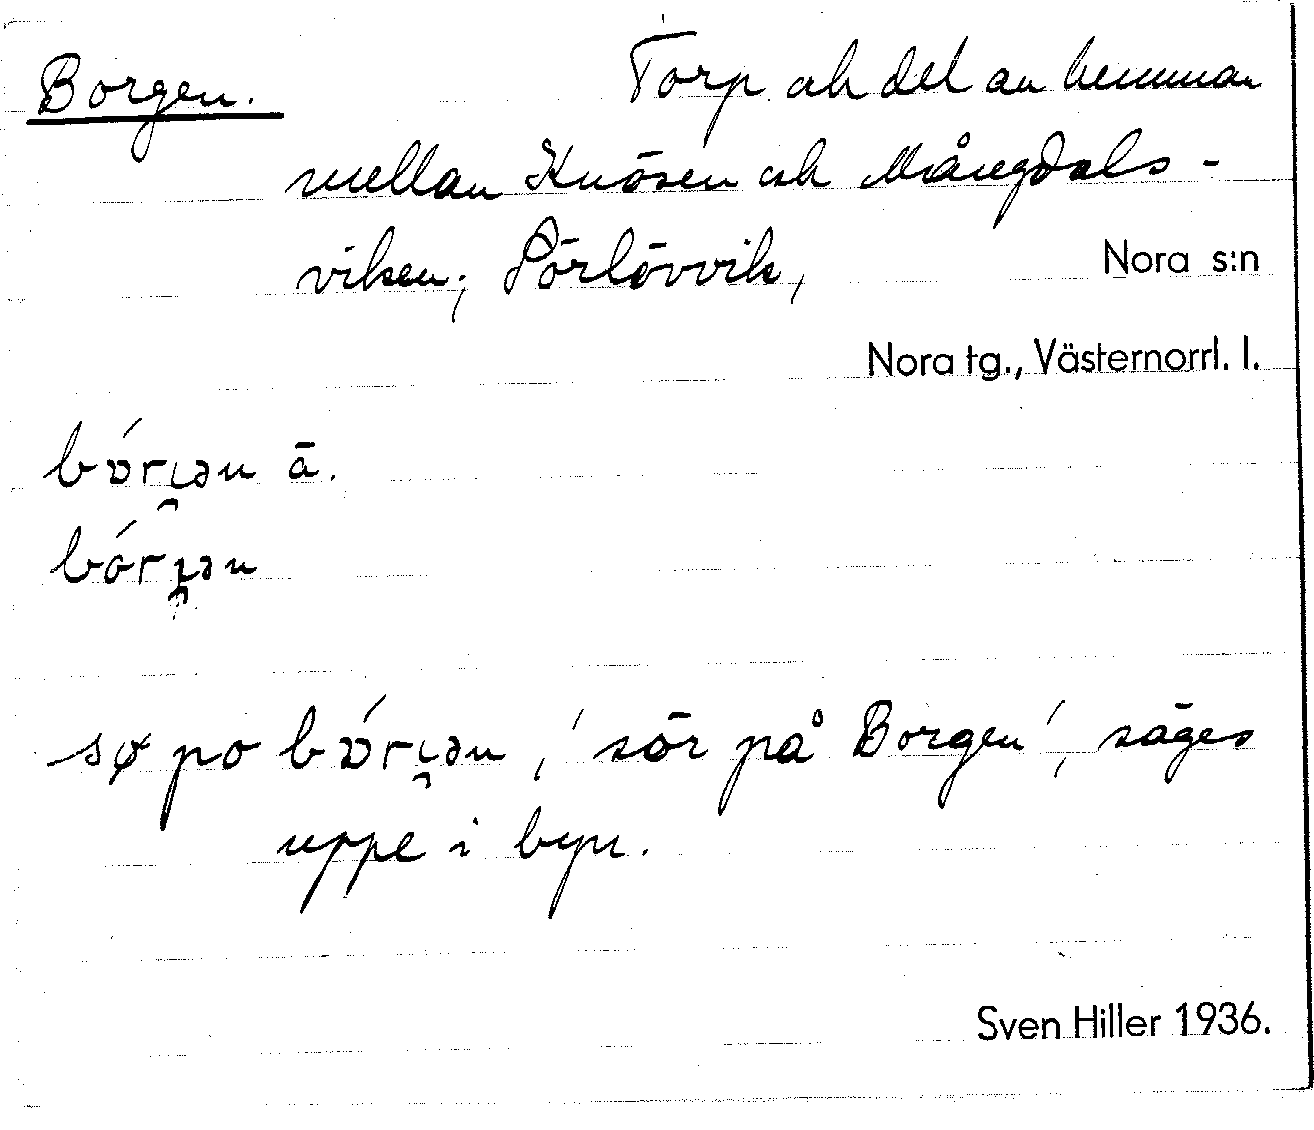 Borgen. Torp och del av hemman
mellan Knösen och Mångdals-
viken; Sörlövvik, Nora s:n
Nora tg., Västernorrl. l.
bɒ́rɩ̯ən ā.
bórɩ̯ən
sø po bɒ́rɩ̯ən, 'sör på Borgen', säges
uppe i byn.
Sven Hiller 1936.